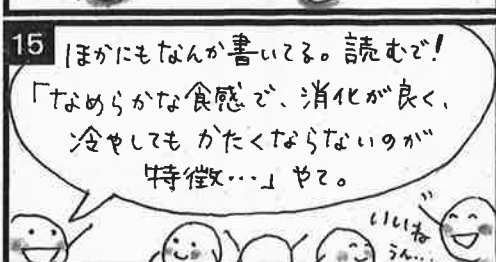 15
ほかにもなんか書いてる。読むで!
「なめらかな食感で、消化が良く、
冷やしても かたくならないのが
特徴…」やて。
いいね
うん…